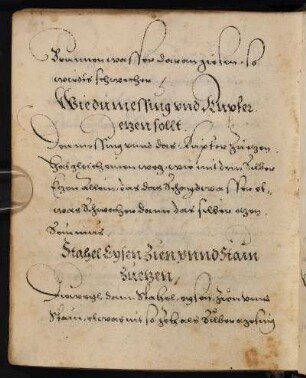 Brunnenwasser daran giesen, so
würdts schwecher
Wie du messing vnd Kupfer
etzen sollt.
Den messing vnnd das Kupfer zu etzen
hat gleich einen weg, wie mit dem silber
Etzen allein, das das Schaydwasser et-
was Schwecher dann das silber etzen
Sein mus.
Stahel Eysen Zien vnnd Stain
zu etzen,
dann Stahel, eysen, Zien vnnd
Stain, etwas nit so